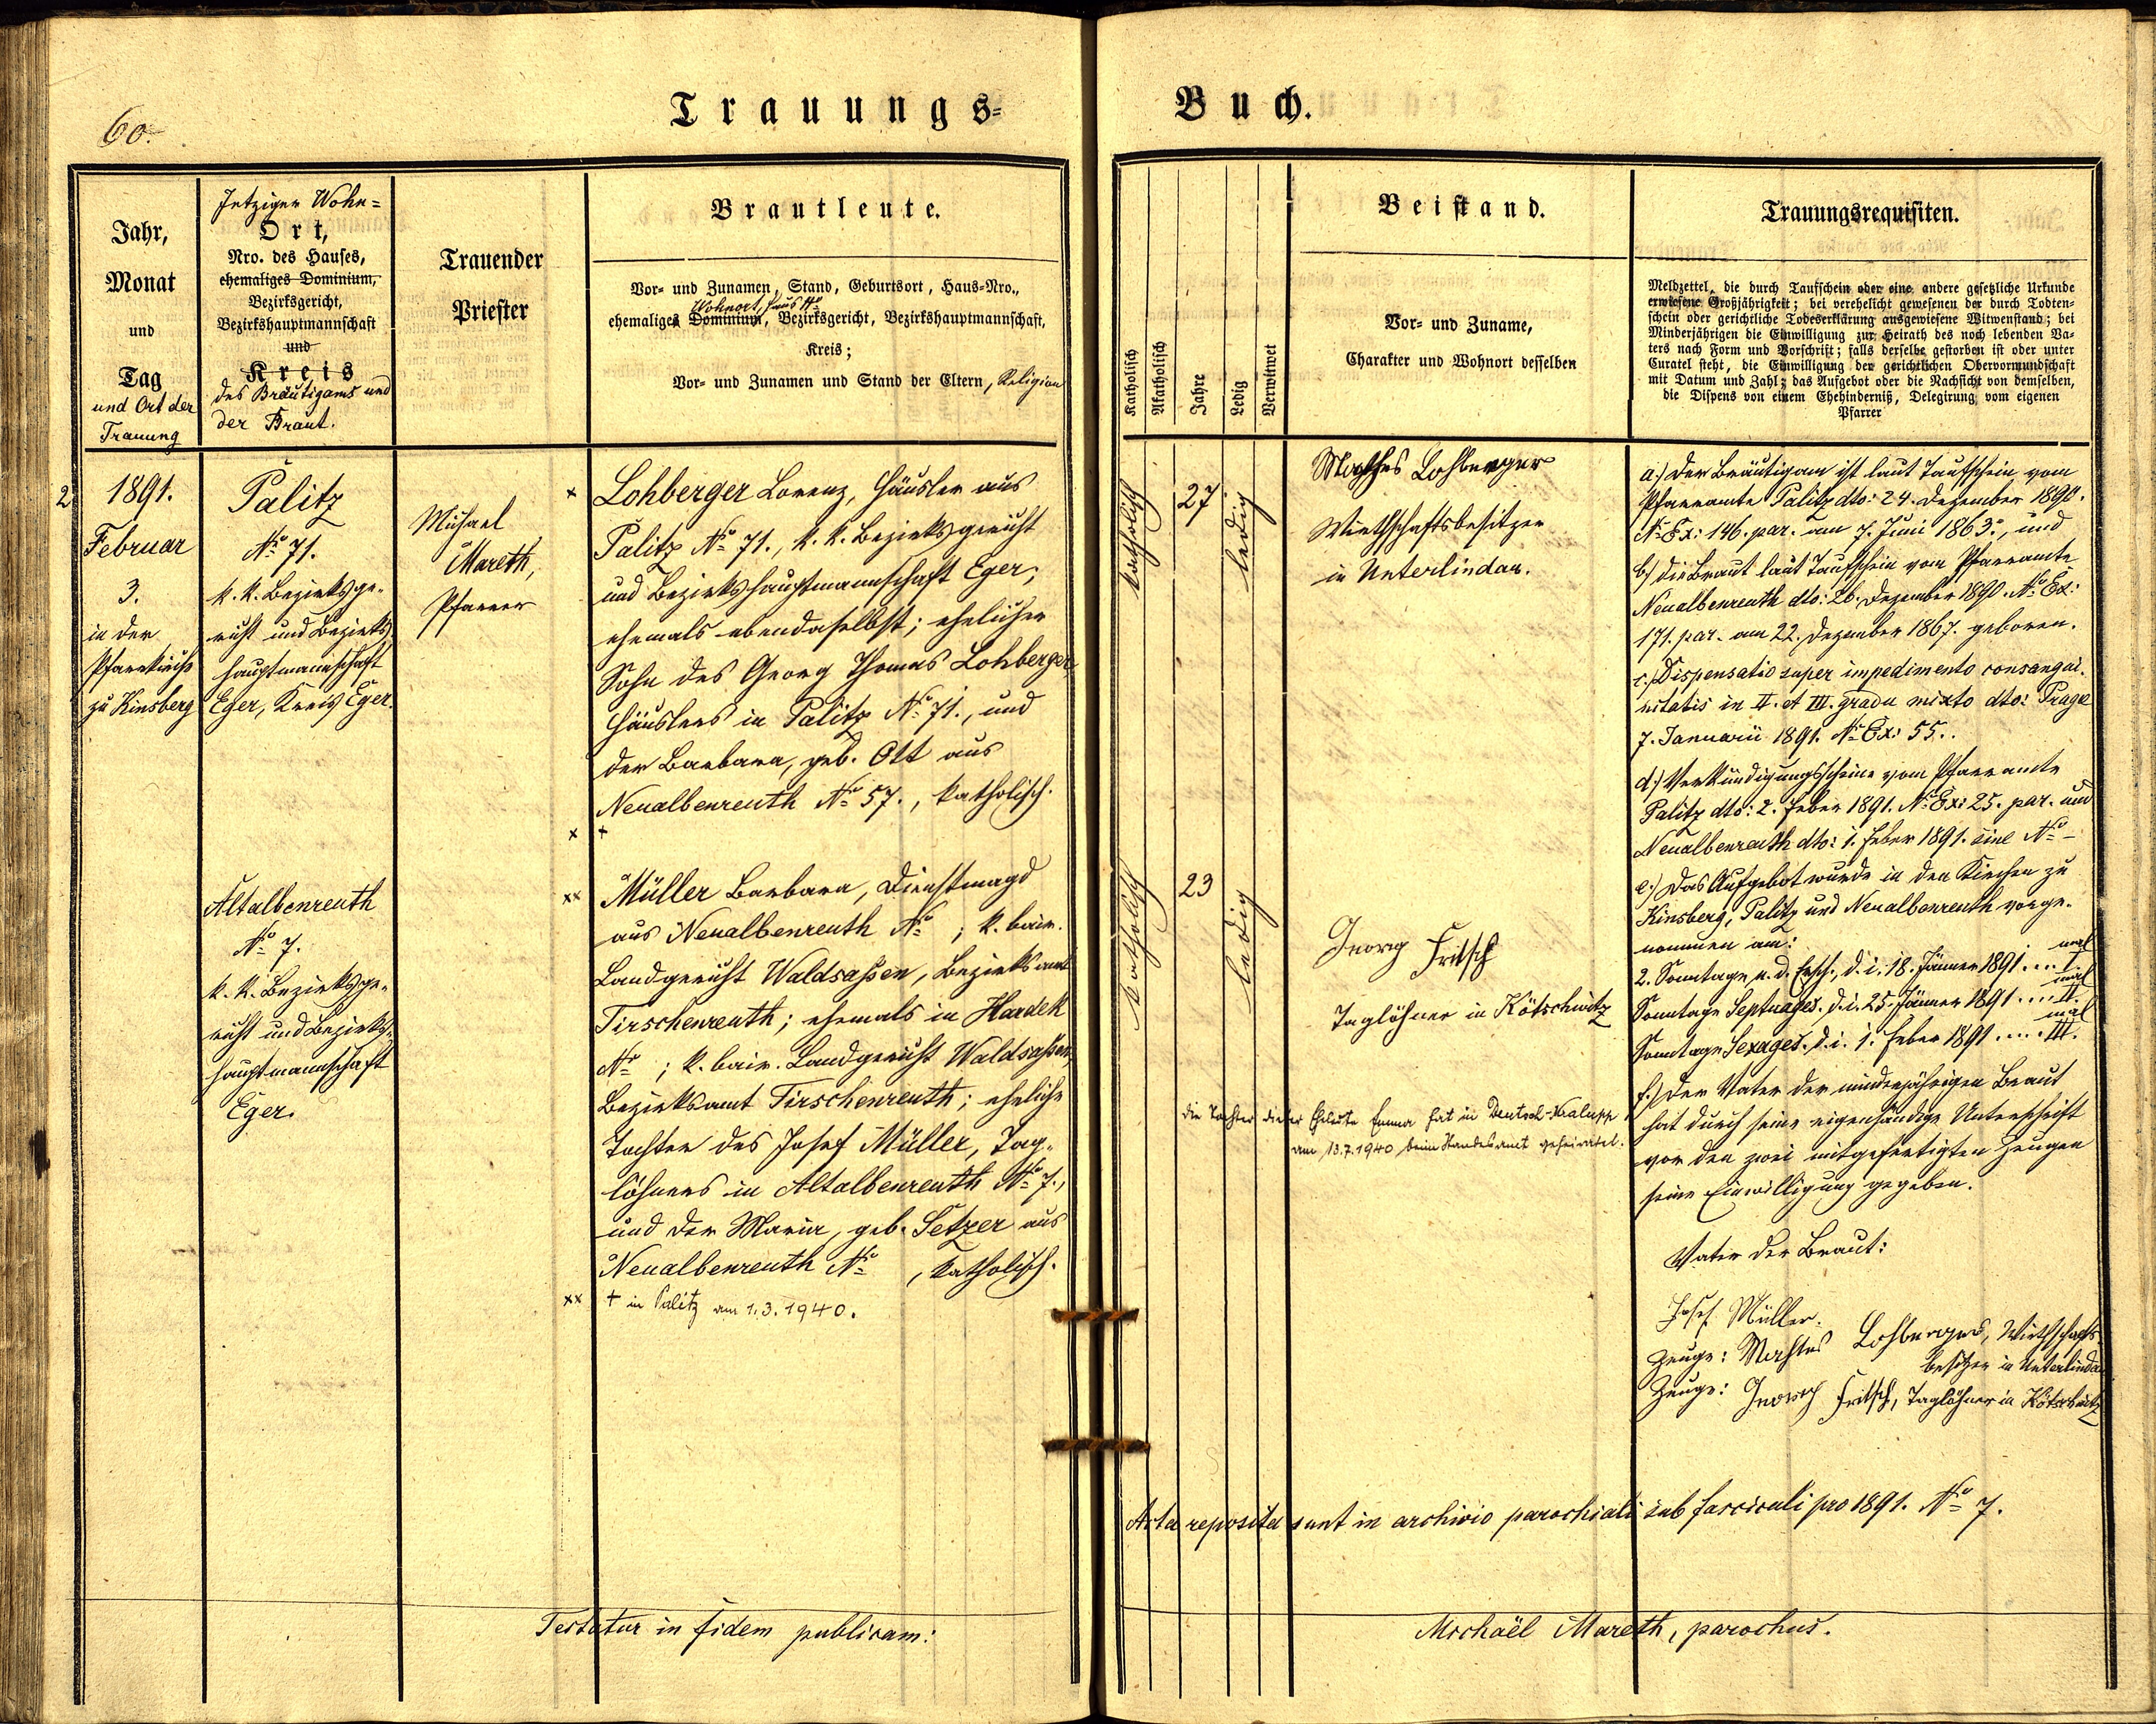 60.
Trauungs=
Buch.
Jahr,
Monat
und
Tag
und Ort der
Trauung
Jetziger Wohn=
Ort,
Nro. des Hauses,
ehemaliges Dominium,
Bezirksgericht,
Bezirkshauptmannschaft
und
Kreis
des Bräutigams und
der Braut.
Trauender
Priester
Brautleute.
Vor- und Zunamen, Stand, Geburtsort, Haus-Nro.,
Wohnort, Haus No
ehemaliges Dominium, Bezirksgericht, Bezirkshauptmannschaft,
Kreis;
Vor- und Zunamen und Stand der Eltern, Religion
Katholisch
Akatholisch
Jahre
Ledig
Verwitwet
Beistand.
Vor- und Zuname,
Charakter und Wohnort desselben
Trauungsrequisiten.
Meldzettel, die durch Taufschein oder eine andere gesetzliche Urkunde
erwiesene Großjährigkeit; bei verehelicht gewesenen der durch Todten-
schein oder gerichtliche Todeserklärung ausgewiesene Witwenstand; bei
Minderjährigen die Einwilligung zur Heirath des noch lebenden Va-
ters nach Form und Vorschrift; falls derselbe gestorben ist oder unter
Curatel steht, die Einwilligung der gerichtlichen Obervormundschaft
mit Datum und Zahl; das Aufgebot oder die Nachsicht von demselben,
die Dispens von einem Ehehinderniß, Delegirung vom eigenen
Pfarrer
2.
1891.
Februar
3.
in der
Pfarrkirche
zu Kinsberg
Palitz
No 71.
k. k. Bezirksge-
richt und Bezirks-
hauptmannschaft
Eger, Kreis Eger.
Altalbenreuth
No 7.
k. k. Bezirksge-
richt und Bezirks-
hauptmannschaft
Eger.
Michael
Mareth,
Pfarrer
x Lohberger Lorenz, Häusler aus
Palitz No 71., k. k. Bezirksgericht
und Bezirkshauptmannschaft Eger,
ehemals ebendaselbst; ehelicher
Sohn des Georg Thomas Lohberger,
Häuslers in Palitz No 71., und
der Barbara, geb. Ott aus
Neualbenreuth No 57., katholisch.
x +
xx Müller Barbara, Dienstmagd
aus Neualbenreuth No ; k. bair.
Landgericht Waldsaßen, Bezirksamt
Tirschenreuth; ehemals in Hardek
No ; k. bair. Landgericht Waldsaßen,
Bezirksamt Tirschenreuth; eheliche
Tochter des Josef Müller, Tag-
löhners in Altalbenreuth No 7.,
und der Maria, geb. Setzer aus
Neualbenreuth No , katholisch.
xx + in Palitz am 1.3.1940.
katholisch
27
ledig
katholisch
23
ledig
Mathes Lohberger
Wirthschaftsbesitzer
in Unterlindau.
Georg Fritsch
Taglöhner in Kötschwitz
Die Tochter dieser Eheleute Emma hat in Deutsch-Kralupp
am 13.7.1940 beim Standesamt geheiratet.
a.) Der Bräutigam ist laut Taufschein vom
Pfarramte Palitz dto: 24. Dezember 1890.
No Ex: 146. par. am 7. Juni 1863., und
b.) die Braut laut Taufschein vom Pfarramte
Neualbenreuth dto: 26. Dezember 1890. No Ex:
171. par. am 22. Dezember 1867. geboren.
c.) Dispensatio super impedimento consangui-
nitatis in II. et III. gradu mixto dto: Prage
7. Januarii 1891. No Ex: 55..
d.) Verkündigungsscheine vom Pfarramte
Palitz dto: 2. Feber 1891. No Ex: 25. par. und
Neualbenreuth dto: 1. Feber 1891. sine No -
e.) Das Aufgebot wurde in den Kirchen zu
Kinsberg, Palitz und Neualbenreuth vorge-
nommen am:
2. Sonntage n. d. Ersch., d. i. 18. Jänner 1891 ... I. mal
Sonntage Septuages. d. i. 25. Jänner 1891 ... II. mal
Sonntage Sexages. d. i. 1. Feber 1891 .... III. mal
f.) Der Vater der minderjährigen Braut
hat durch seine eigenhändige Unterschrift
vor den zwei mitgefertigten Zeugen
seine Einwilligung gegeben.
Vater der Braut:
Josef Müller.
Zeuge: Mathes Lohberger, Wirthschafts-
besitzer in Unterlindau
Zeuge: Georg Fritsch, Taglöhner in Kötschwitz
Acta reposita sunt in archivio parochiali sub fasciculi pro 1891. No 7.
Testatur in fidem publicam:
Michaël Mareth, parochus.